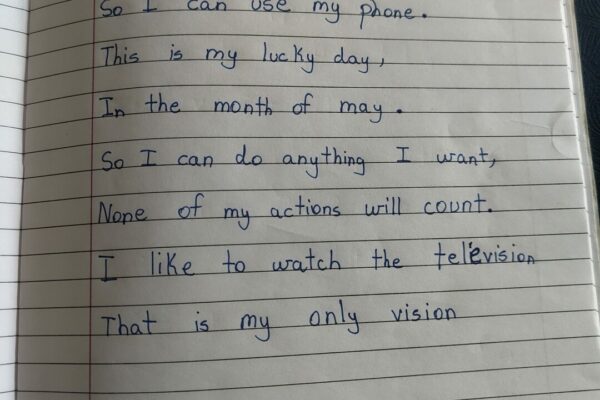 So I can use my phone.
This is my lucky day,
In the month of may.
So I can do anything I want,
None of my actions will count.
I like to watch the television
That is my only vision